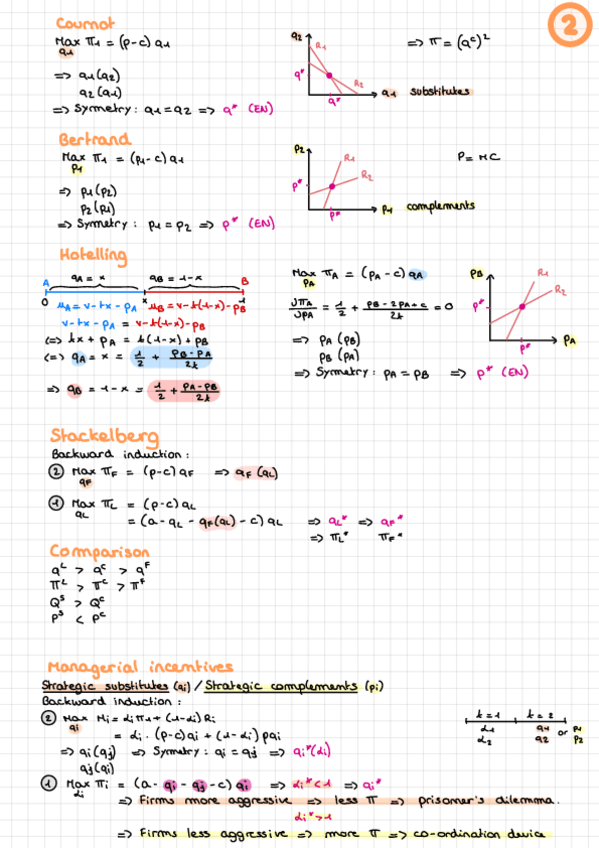 2
Cournot
Max π1 = (p-c) q1
q1
=> q1(q2)
q2(q1)
=> Symmetry: q1 = q2 => q* (EN)
q2
R1
q*
R2
q*
q1
substitutes
=> π = (qᶜ)²
Bertrand
Max π1 = (p1-c) q1
p1
=> p1(p2)
p2(p1)
=> Symmetry: p1 = p2 => p* (EN)
p2
R1
R2
p*
p*
p1
complements
P = MC
Hotelling
qA = x
qB = 1-x
A
B
0
x
1
uA = v-tx-pA
uB = v-t(1-x)-pB
v-tx-pA = v-t(1-x)-pB
(=> tx + pA = t(1-x) + pB
(=> qA = x = 1/2 + (pB-pA)/2t
=> qB = 1-x = 1/2 + (pA-pB)/2t
Max πA = (pA-c) qA
pA
∂πA/∂pA = 1/2 + (pB-2pA+c)/2t = 0
=> pA (pB)
pB (pA)
=> Symmetry: pA = pB => p* (EN)
pB
R1
R2
p*
p*
pA
Stackelberg
Backward induction:
② Max πF = (p-c) qF => qF (qL)
qF
① Max πL = (p-c) qL
qL
= (a - qL - qF(qL) - c) qL => qL* => qF*
=> πL* πF*
Comparison
qᴸ > qᶜ > qᶠ
πᴸ > πᶜ > πᶠ
Qˢ > Qᶜ
Pˢ < Pᶜ
Managerial incentives
Strategic substitutes (qi) / Strategic complements (pi)
Backward induction:
② Max Mi = αi πi + (1-αi) Ri
qi
= αi · (p-c) qi + (1-αi) pqi
=> qi(qj) => Symmetry: qi = qj => qi*(αi)
qj(qi)
t=1
t=2
α1
α2
q1
q2
or
p1
p2
① Max πi = (a - qi - qj - c) qi => αi* < 1 => qi*
αi
=> Firms more aggressive => less π => prisomer's dilemma.
αi* > 1
=> Firms less aggressive => more π => co-ordination device